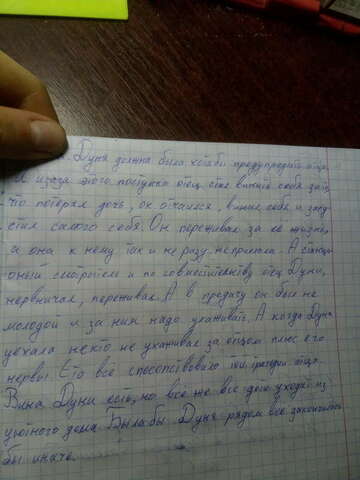 Дуня должна была хотябы предупредить отца.
И из за этого поступка отец стал винить себя за то,
что потерял дочь, он отчаялся, винил себя и запу-
стил самого себя. Он переживал за её жизнь,
а она к нему так и не разу не приехала. А станци
оный смотритель и по совместительству отец Дуни,
нервничал, переживал. А в предачу он был не
молодой и за ним надо ухаживать. А когда Дуня
уехала некто не ухаживал за отцом плюс его
нервы. Ето всё способствовало той трагедии отца.
Вина Дуни есть, но всё же все дети уходят из
уютного дома. Былабы Дуня рядом всё закончилось
бы иначе.